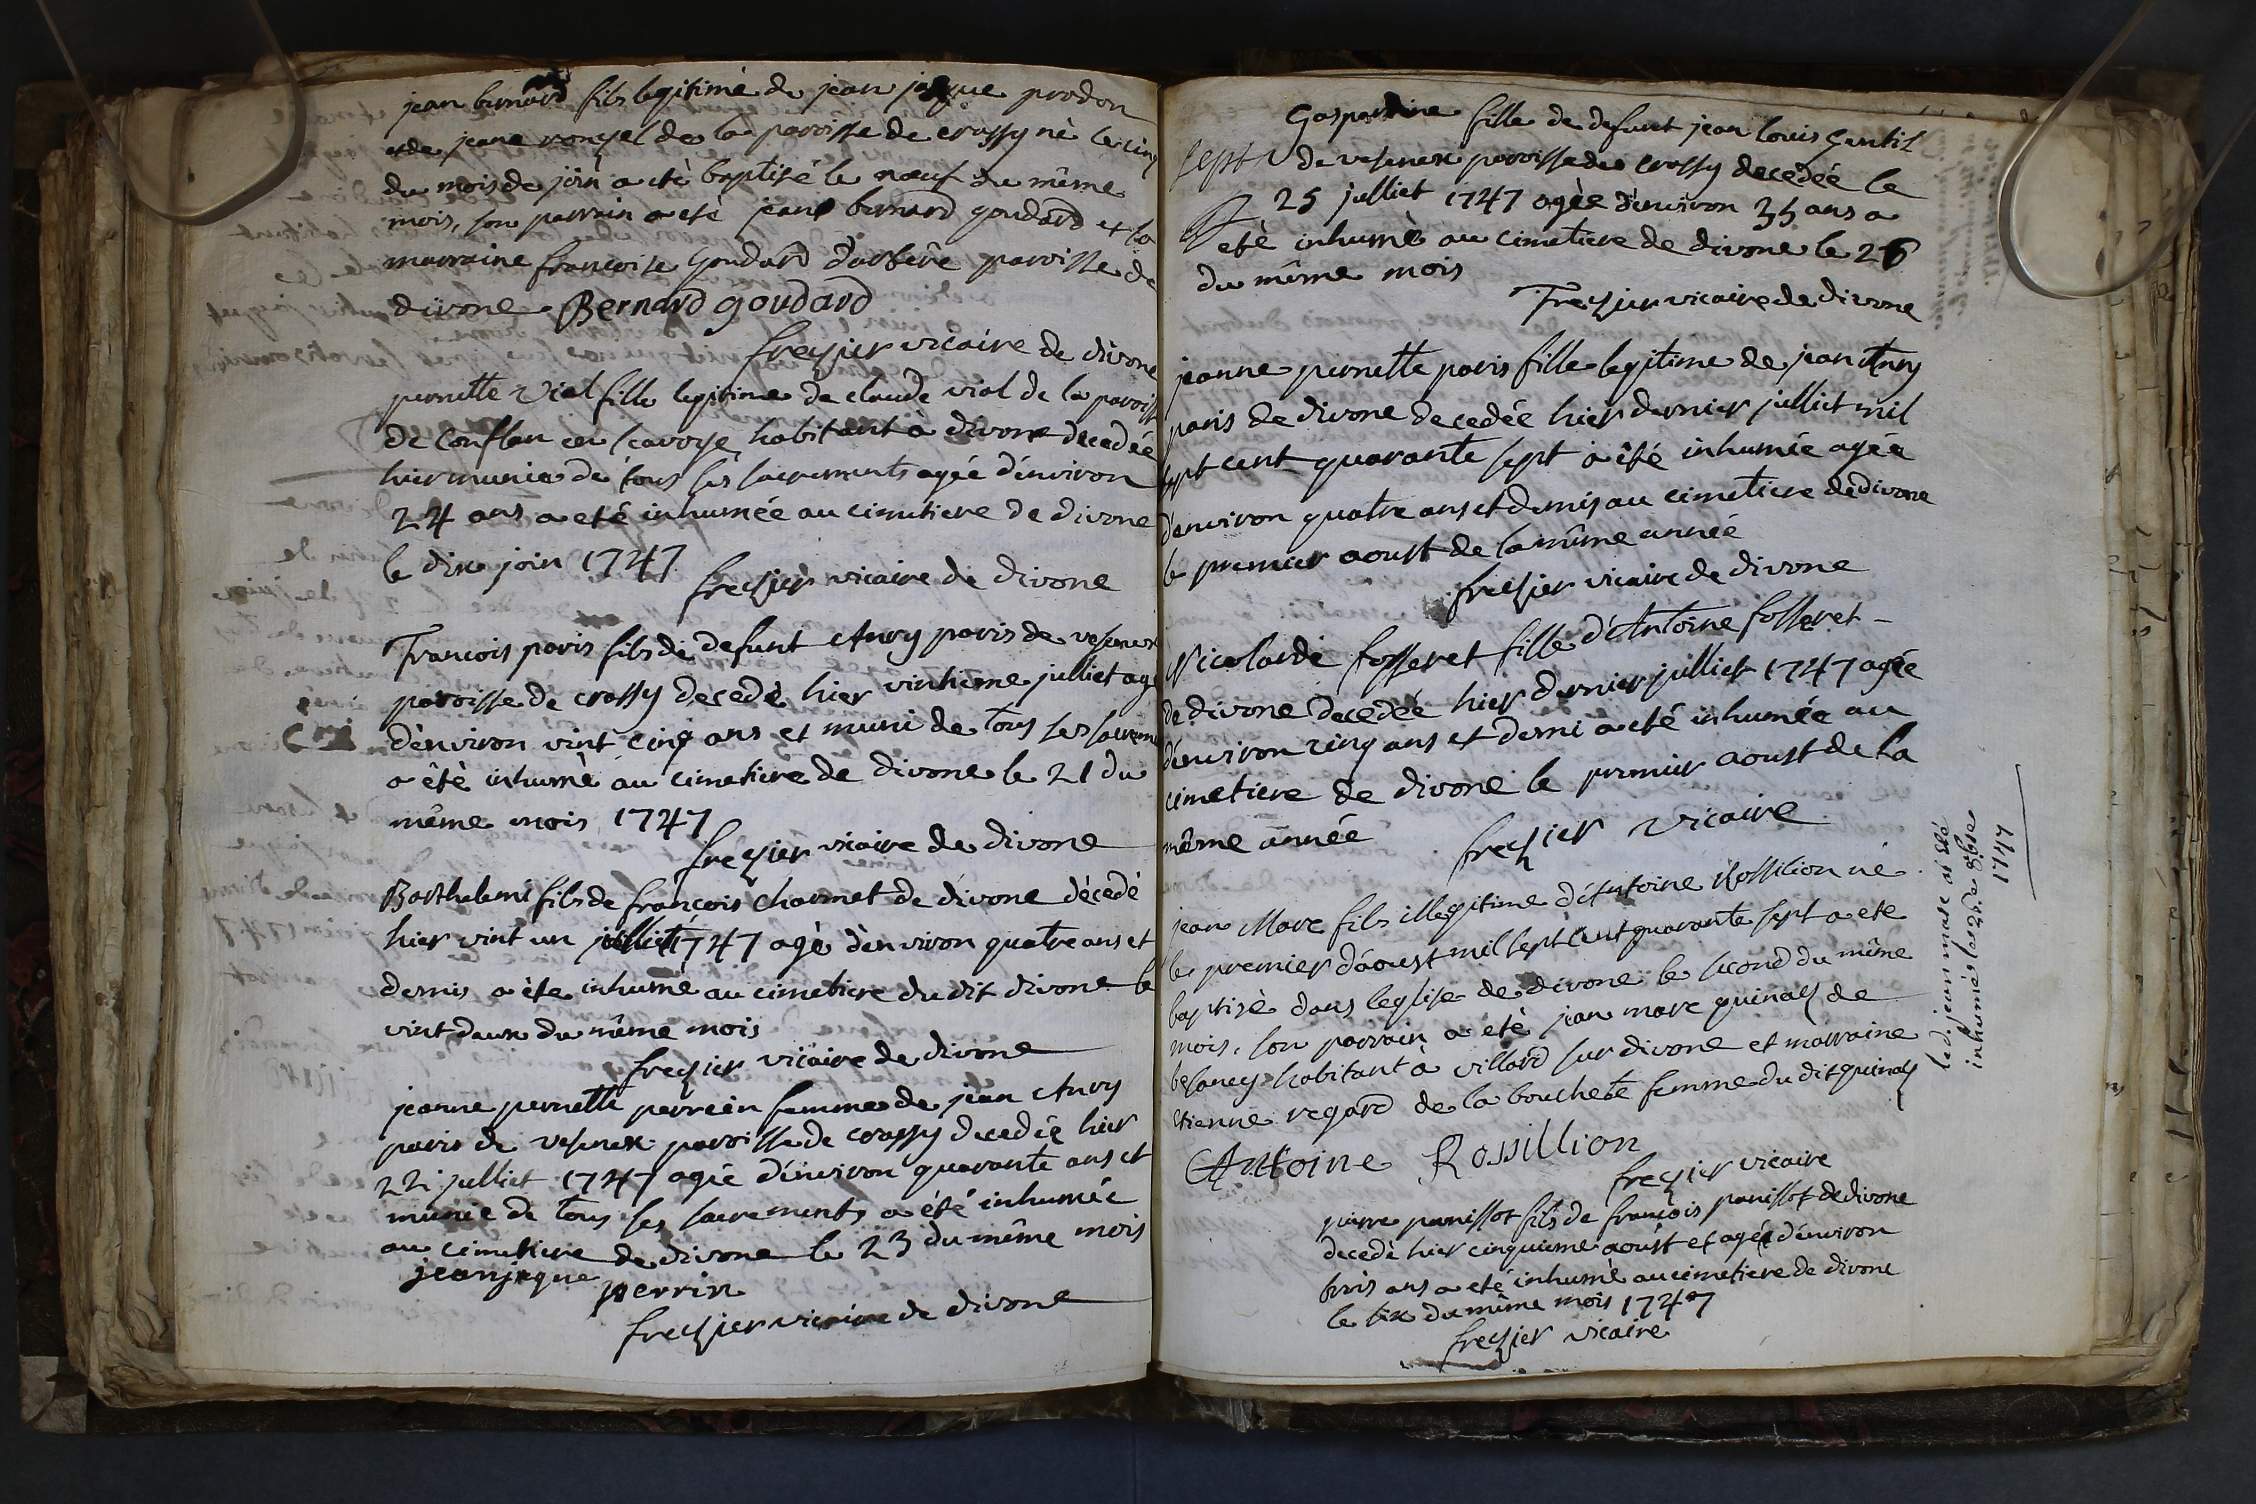 jean bernard fils legitime de jean jaque prodon
et de jeane vonzel de la paroisse de crassy né le cinq
du mois de join a eté baptisé le nœuf du même
mois, son parrain a eté jean bernard goudard et la
marraine francoise goudard d'arbere paroisse de
divone Bernard goudard
frezier vicaire de divone
pernette viol fille legitime de claude viol de la paroisse
de Conflan en scavoye habitant à divone decedée
hier munie de tous les sacrements agée d'environ
24 ans a eté inhumée au cimetiere de divone
le dix join 1747
frezier vicaire de divone
Francois paris fils de defunt Anry paris de vesenex
paroisse de crassy decedé hier vinhieme julliet agé
d'environ vint cinq ans et muni de tous les sacrem
a été inhumé au cimetiere de divone le 21 du
même mois 1747
frezier vicaire de divone
Barthelemi fils de françois charmet de divone décedé
hier vint un julliet 1747 agé d'environ quatre ans et
demis a éte inhumé au cimetiere du dit divone le
vint deux du même mois
frezier vicaire de divone
jeanne pernette perrein femme de jean Anry
paris de vesenex paroisse de crassy decedée hier
22 julliet 1747 agée d'environ quarante ans et
munie de tous les sacrements a été inhumée
au cimetiere de divone le 23 du même mois
jean jaque perrin
frezier vicaire de divone
Gaspardine fille de defunt jean louis Gentil
de vesenex paroisse de crassy decedée le
25 julliet 1747 agée d'environ 35 ans a
eté inhumé au cimetiere de divone le 26
du même mois
Frezier vicaire de divone
jeanne pernette paris fille legitime de jean Anry
paris de divone decedée hier dernier julliet mil
sept cent quarante sept a été inhumée agée
d'environ quatre ans et demis au cimetiere de divone
le premier aoust de la même année
frezier vicaire de divone
Nicolarde fosseret fille d'Antoine fosseret
de divone decedée hier dernier julliet 1747 agée
d'environ cinq ans et demi a eté inhumée au
cimetiere de divone le premier aoust de la
même année frezier vicaire
jean Marc fils illegitime d'Antoine Rossilion né
le premier d'aoust mil sept cent quarante sept a ete
baptisé dans l'eglise de divone le second du même
mois, son parrain a eté jean marc quinaz de
besancy habitant à villard sur divone et marraine
etienne regard de la bouchete femme du dit quinaz
Antoine Rossillion
frezier vicaire
pierre panissot fils de françois panissot de divone
decedé hier cinquieme aoust et agée d'environ
trois ans a eté inhumé au cimetiere de divone
le six du même mois 1747
frezier vicaire
ledit jean marc at été
inhumé le 25 de 8bre
1747